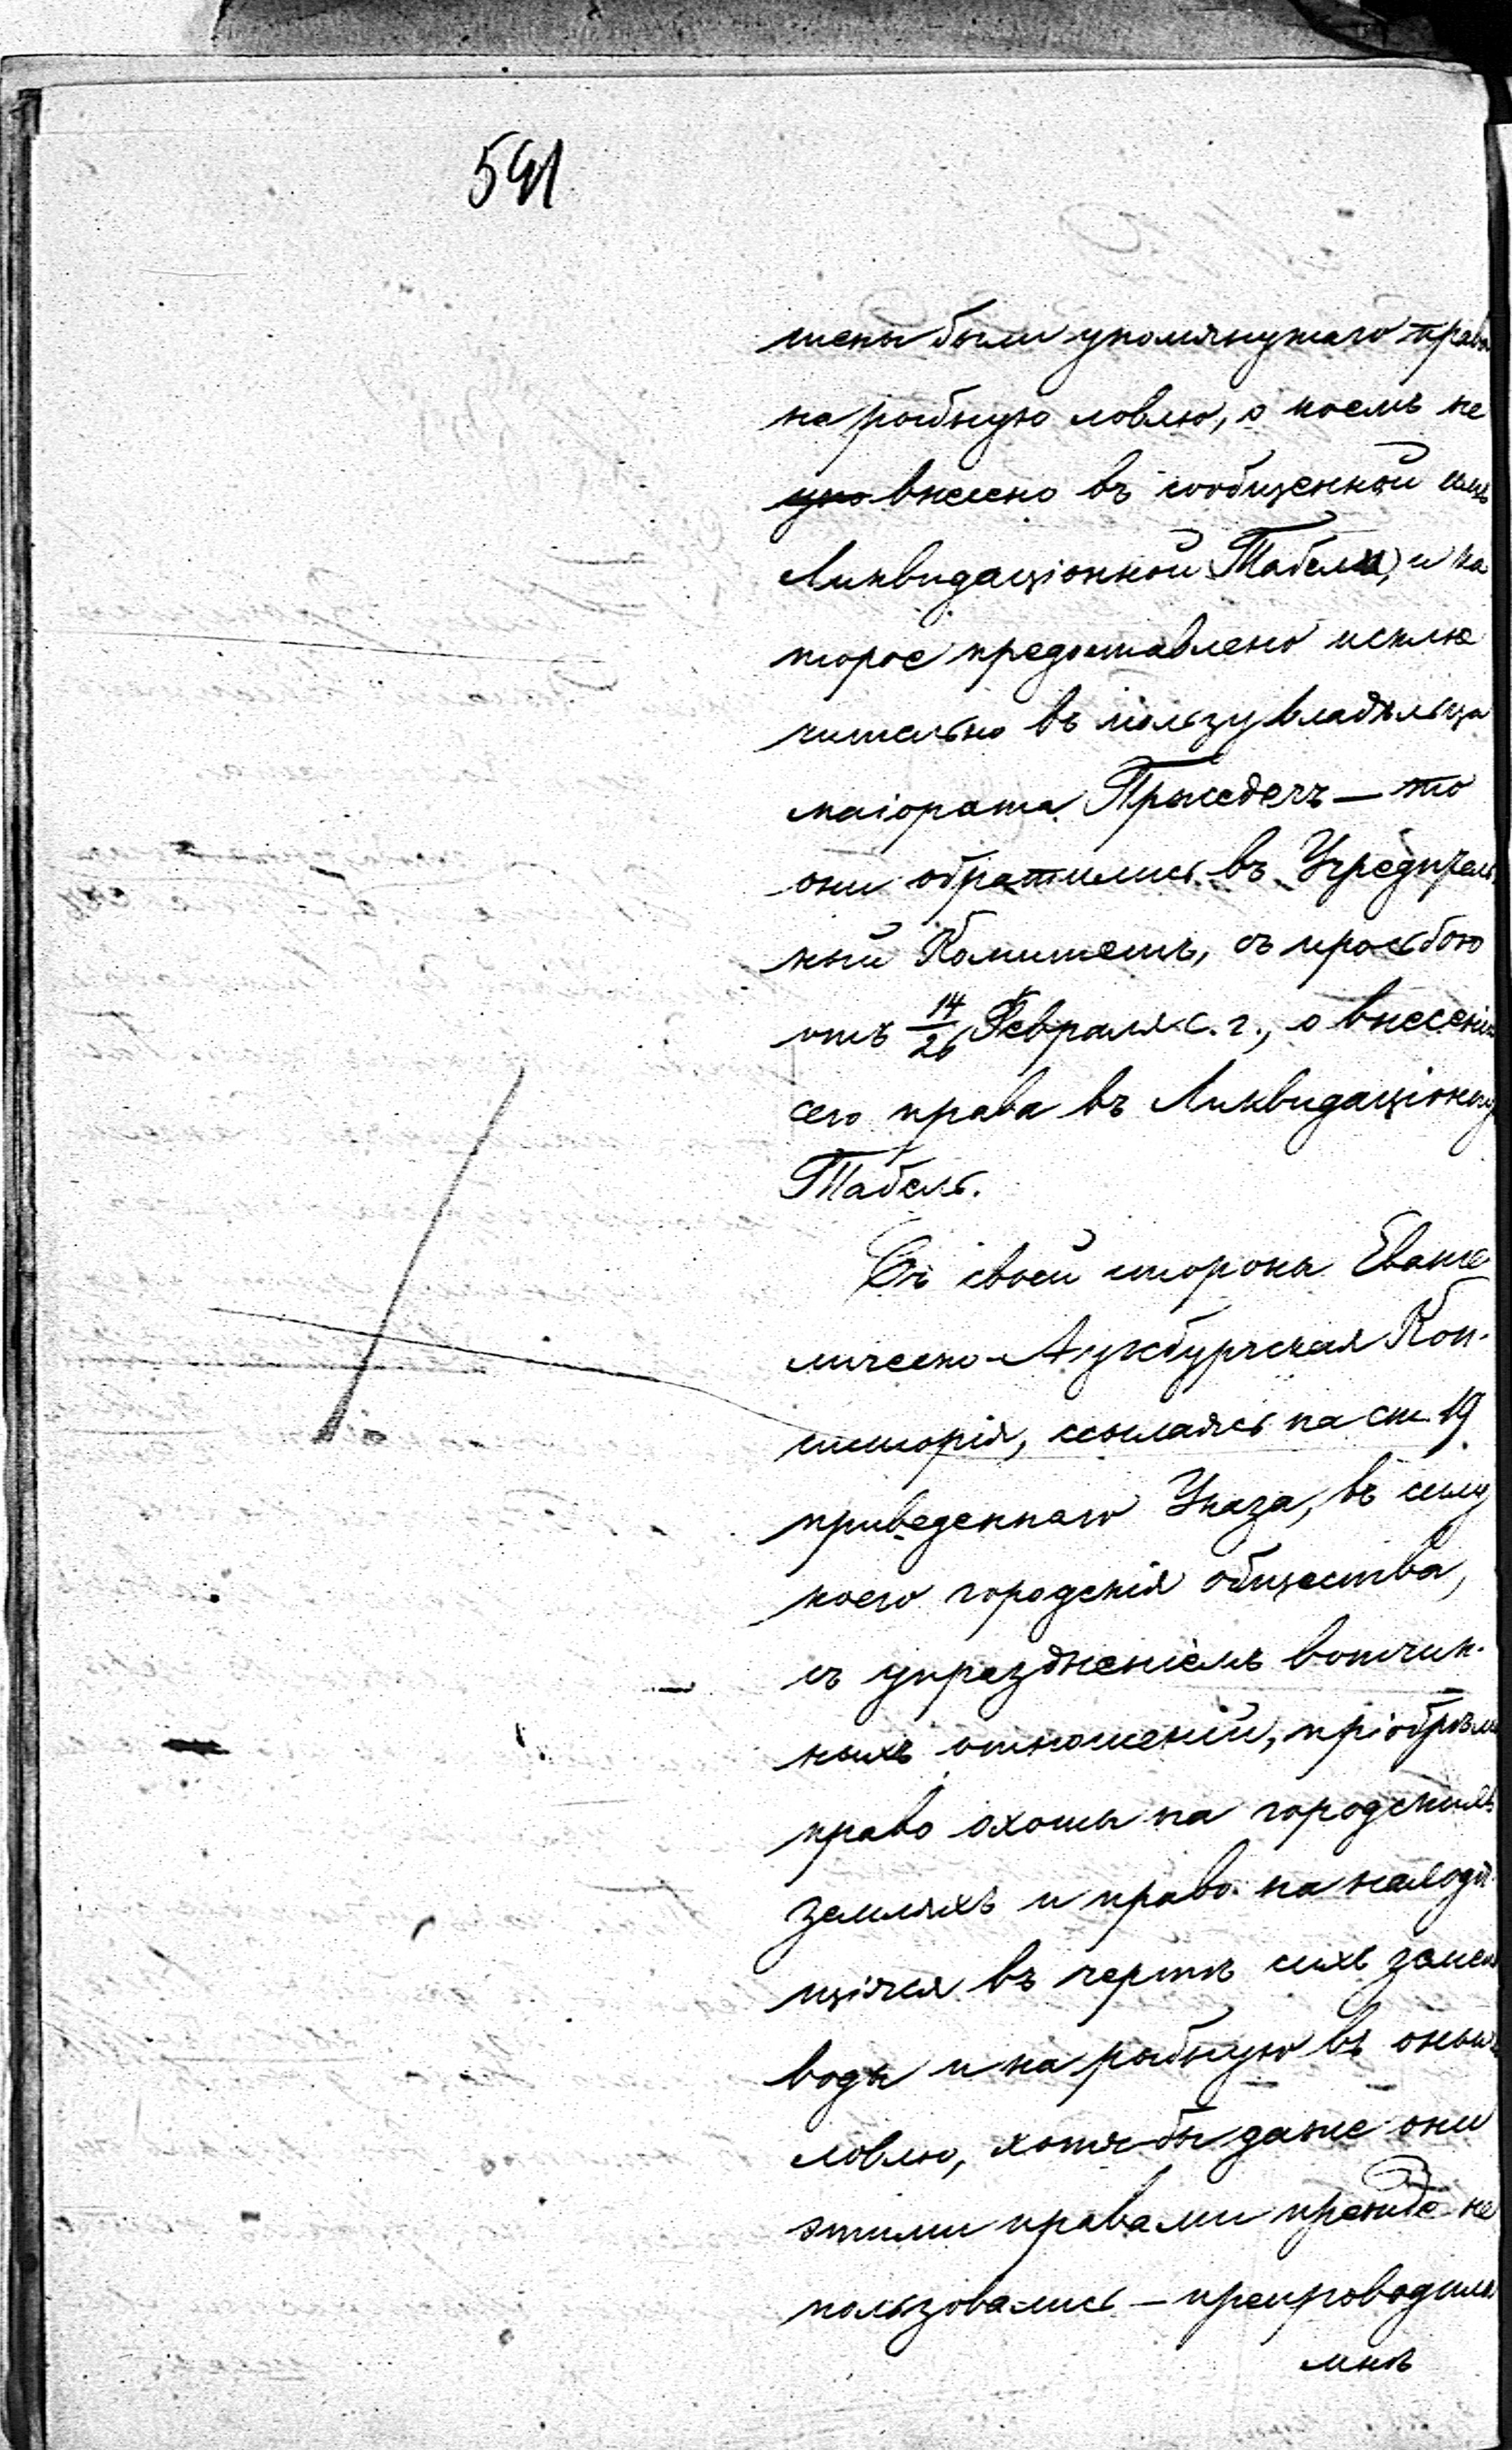 541
шены были упомянутаго права
на рыбную ловлю, о коемъ не
упо внесено въ сообщенной имъ
Ликвидаціонной Табели, и ко
торое предоставлено исклю
чительно въ пользу владѣльца
маіората Пршедечъ — то
они обратились въ Учредитель
ный Комитетъ, съ просьбою
отъ 14/26 Февраля с. г., о внесеніи
сего права въ Ликвидаціонную
Табель.
Съ своей стороны Еванге
лическо-Аугсбургская Кон-
систорія, ссылаясь на ст. 19
приведеннаго Указа, въ силу
коего городскія общества,
съ упраздненіемъ вотчин-
ныхъ отношеній, пріобрѣли
право охоты на городскихъ
земляхъ и право на находя
щіяся въ чертѣ сихъ земель
воды и на рыбную въ оныхъ
ловлю, хотя-бы даже они
этими правами прежде не
пользовались — препроводила
мнѣ